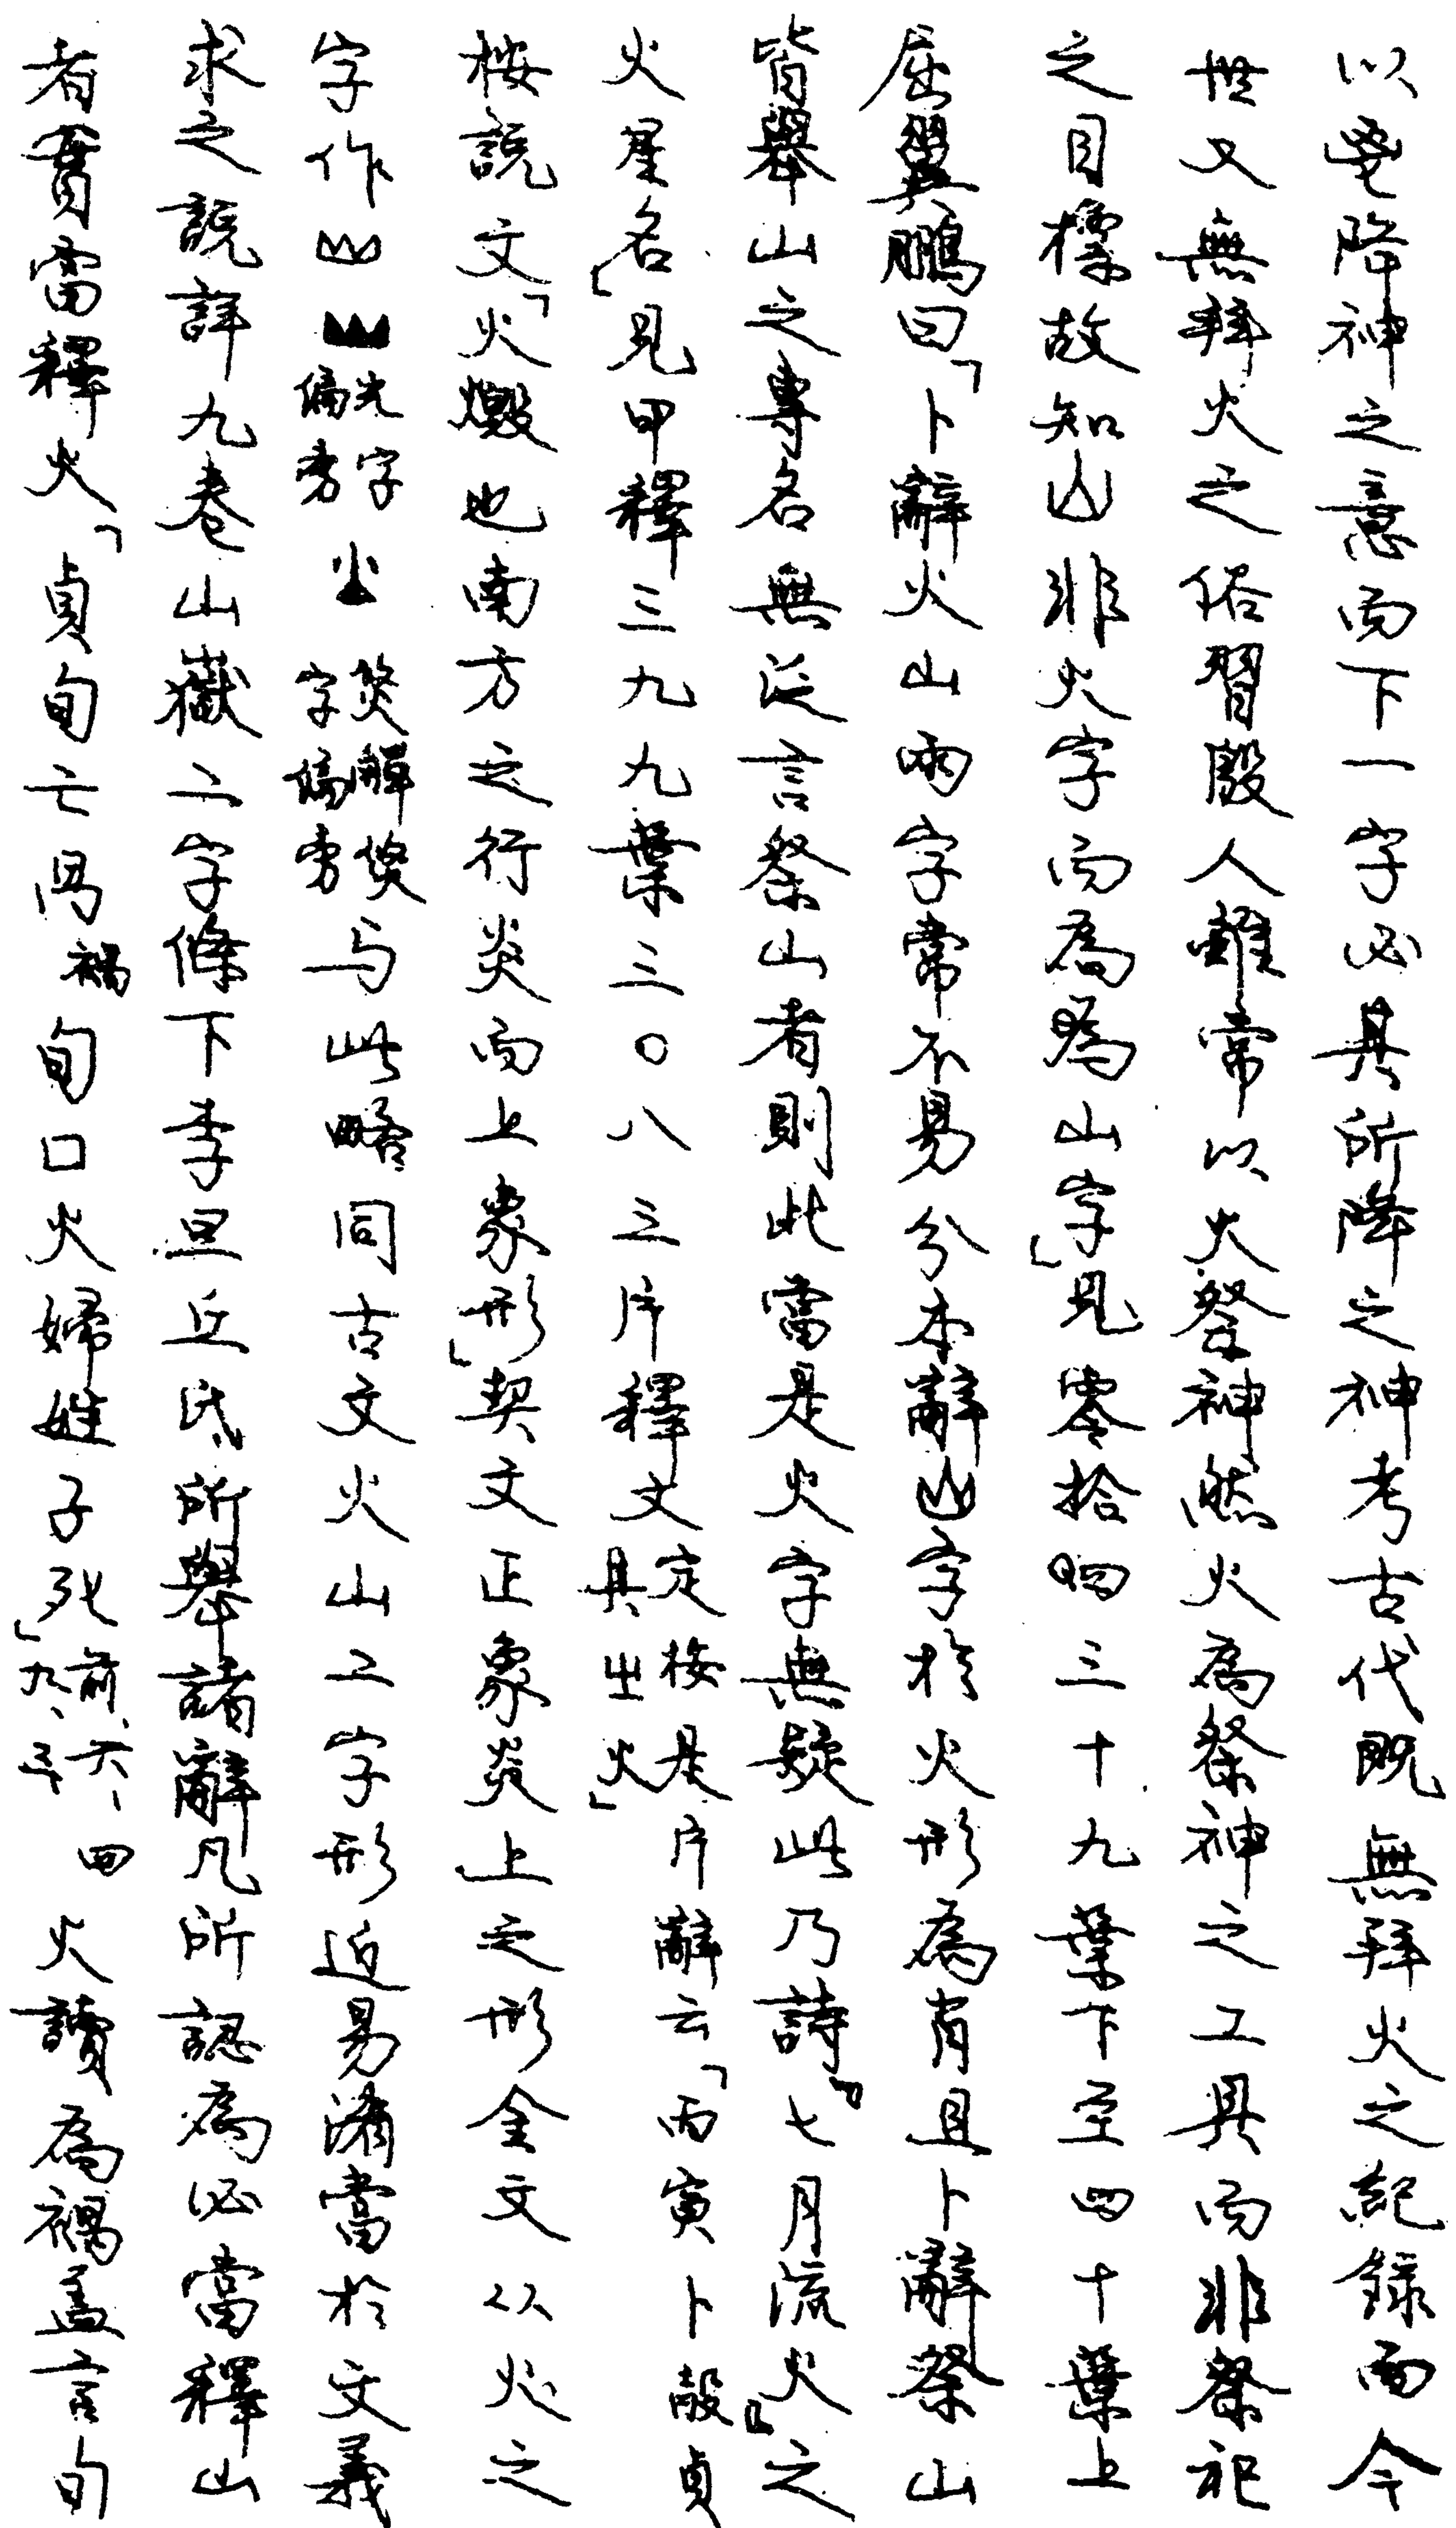 以鬯降神之意而下一字必其所降之神考古代既無拜火之紀錄而今
世又無拜火之俗習殷人雖常以火祭神然火為祭神之工具而非祭祀
之目標故知山非火字而為為山字」見零拾四三十九葉下至四十葉上
屈翼鵬曰「卜辭火山兩字常不易分本辭山字於火形為肖且卜辭祭山
皆舉山之專名無泛言祭山者則此當是火字無疑此乃詩『七月流火』之
火星名「見甲釋三九九葉三〇八三片釋文定按是片辭云「丙寅卜㱿貞其㞢火」
按說文「火燬也南方之行炎而上象形」契文正象炎上之形金文从火之
字作光字偏旁 焚觶燓字偏旁与此略同古文火山二字形近易淆當於文義
求之說詳九卷山嶽二字條下李旦丘氏所舉諸辭凡所認為必當釋山
者實當釋火「貞旬亡𡆥禍旬口火婦姓子死」前、六、四九、三、火讀為禍蓋言旬